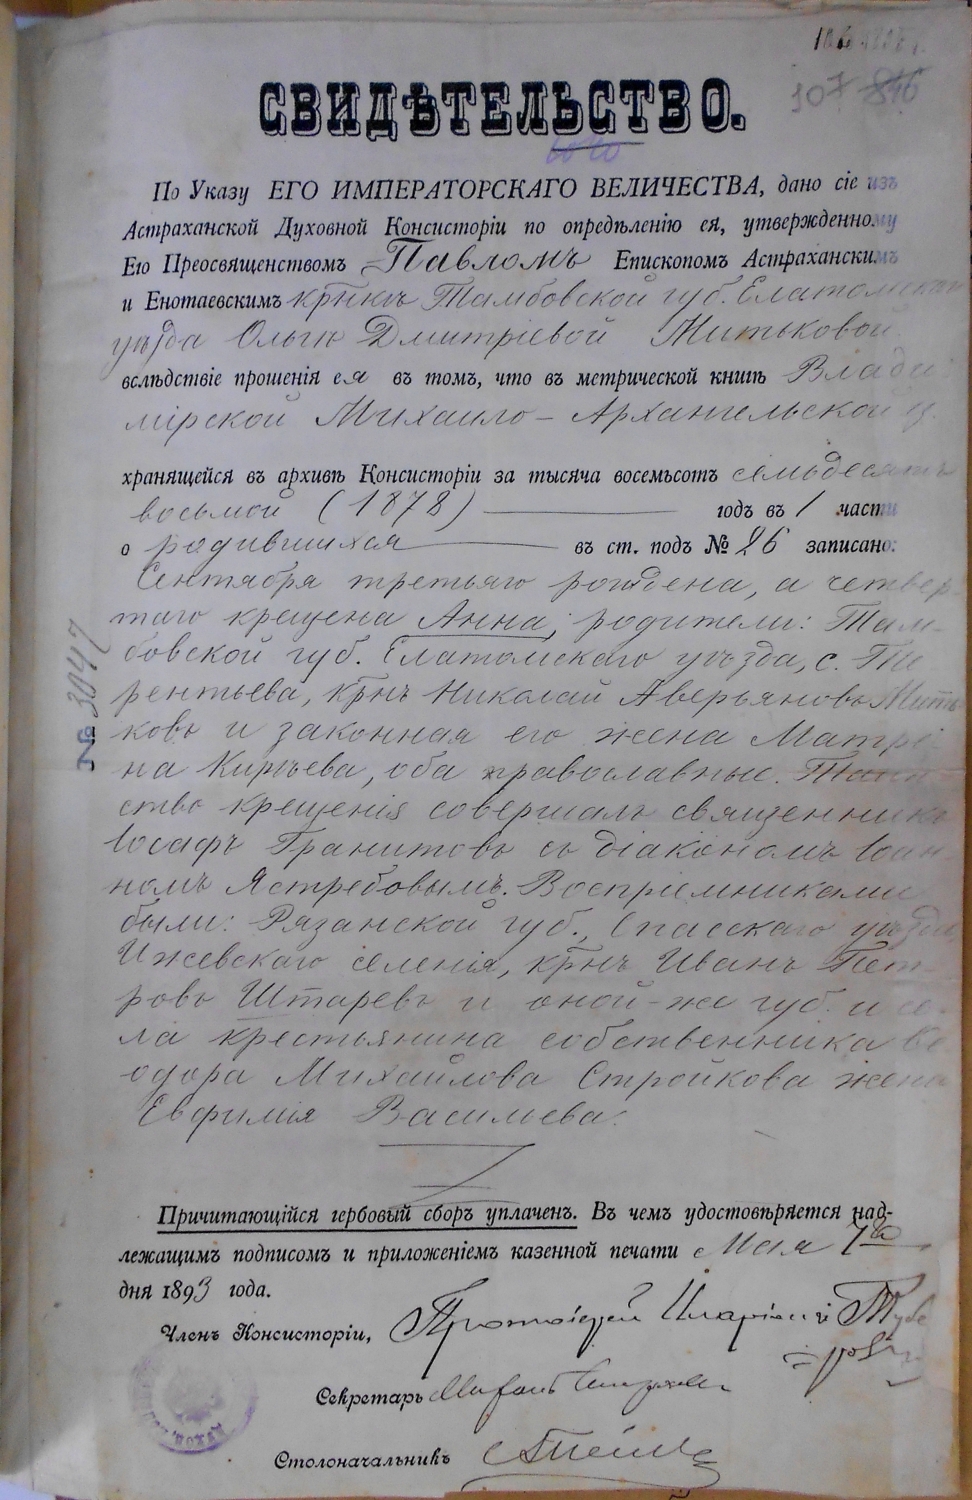 107 846
СВИДѢТЕЛЬСТВО.
По Указу ЕГО ИМПЕРАТОРСКАГО ВЕЛИЧЕСТВА, дано сіе изъ
Астраханской Духовной Консисторіи по опредѣленію ея, утвержденному
Его Преосвященствомъ Павломъ Епископомъ Астраханскимъ
и Енотаевскимъ кр̃нкѣ Тамбовской губ. Елатомскаго
уѣзда Ольгѣ Дмитріевой Митьковой
вслѣдствіе прошенія ея въ томъ, что въ метрической книгѣ Влади-
мірской Михаило-Архангельской ц.
хранящейся въ архивѣ Консисторіи за тысяча восемьсотъ семьдесятъ
восьмой (1878) годъ въ 1 части
о родившихся въ ст. подъ № 26 записано:
Сентября третьяго рождена, а четвер-
таго крещена Анна; родители: Там-
бовской губ. Елатомскаго уѣзда, с. Те-
рентьева, кр̃нъ Николай Аверьяновъ Мить-
ковъ и законная его жена Матре-
на Кирѣева, оба православные. Таин-
ство крещенія совершалъ священникъ
Іосафъ Гранитовъ съ діакономъ Іоан-
номъ Ястребовымъ. Воспріемниками
были: Рязанской губ., Спасскаго уѣзда,
Ижевскаго селенія, кр̃нъ Иванъ Пет-
ровъ Штаревъ и оной-же губ. и се-
ла крестьянина собственника Ѳе-
одора Михайлова Стройкова жена
Евфимія Васильева.
№ 3047
Причитающійся гербовый сборъ уплаченъ. Въ чемъ удостовѣряется над-
лежащимъ подписомъ и приложеніемъ казенной печати Мая 7го
дня 1893 года.
Членъ Консисторіи, Протоіерей Иларіонъ
Секретарь
Столоначальникъ